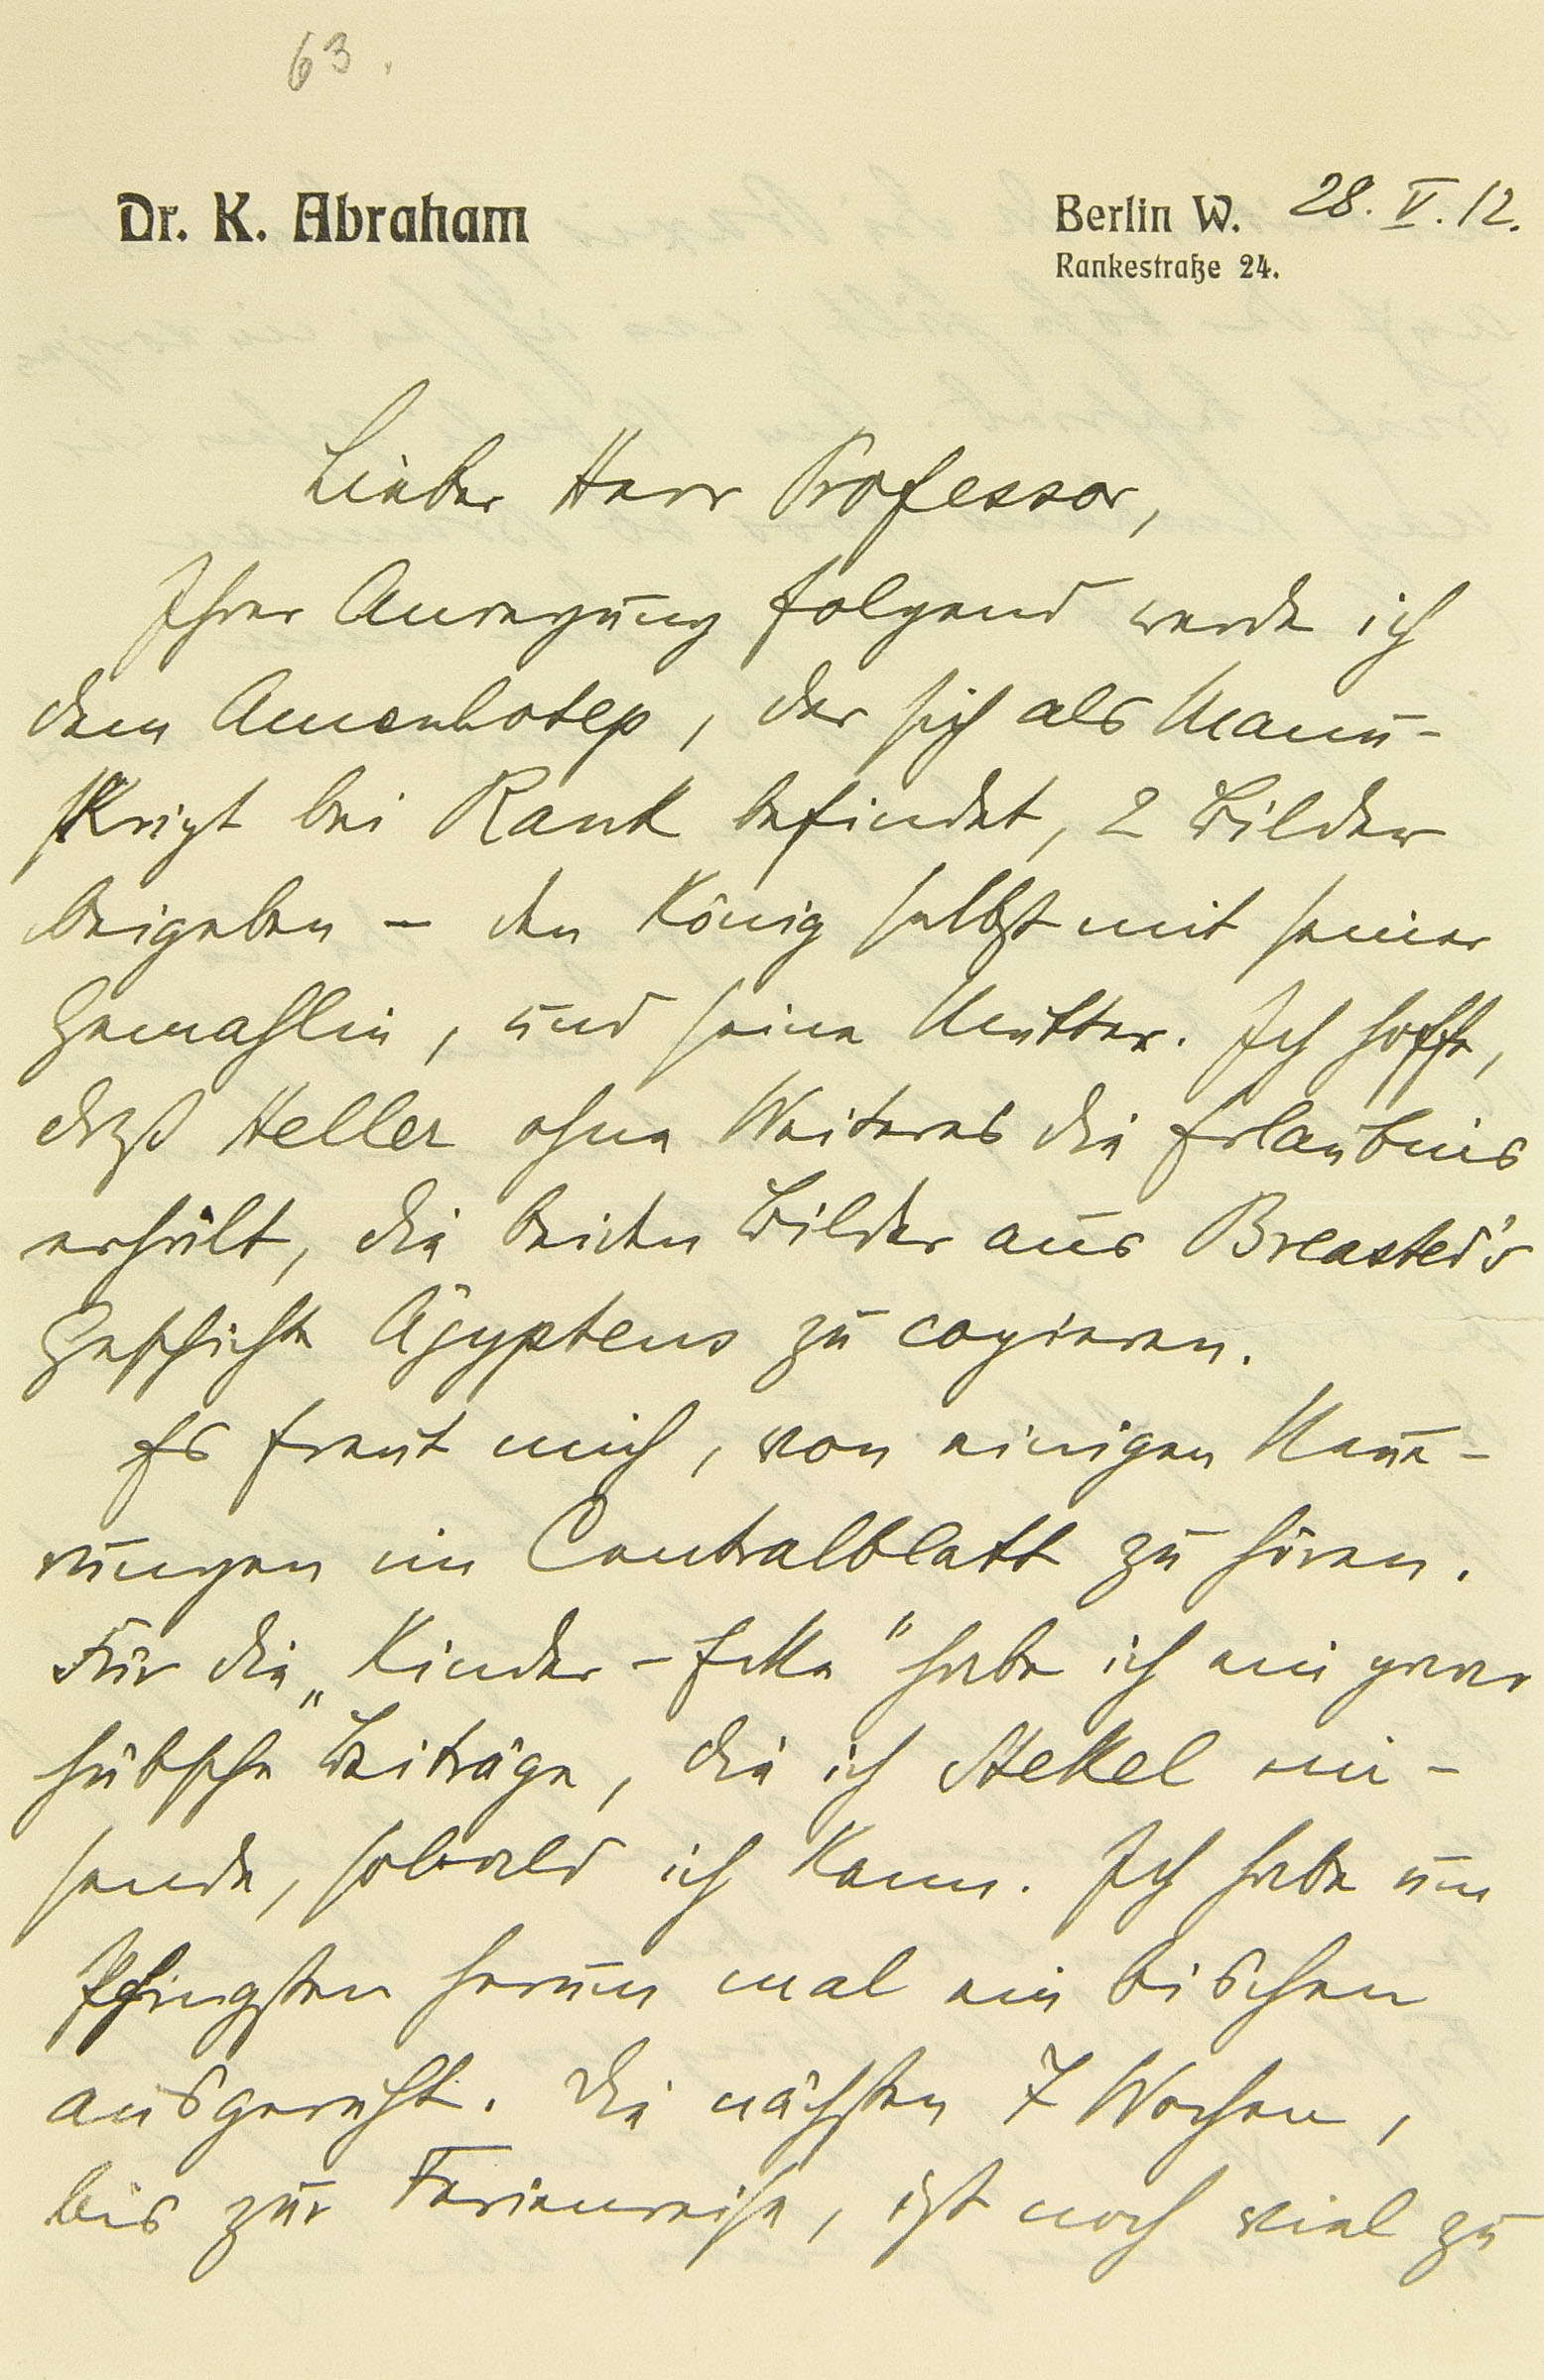 63.
Dr. K. Abraham
Berlin W. 28. V. 12.
Rankestraße 24.
Lieber Herr Professor,
Ihrer Anregung folgend werde ich
dem Amenhotep, der sich als Manu-
skript bei Rank befindet, 2 Bilder
beigeben – den König selbst mit seiner
Gemahlin, und seine Mutter. Ich hoffe,
daß Heller ohne Weiteres die Erlaubnis
erhält, die beiden Bilder aus Breasted's
Geschichte Ägyptens zu copieren.
Es freut mich, von einigen Neue-
rungen im Centralblatt zu hören.
Für die „Kinder-Ecke" habe ich ein paar
hübsche Beiträge, die ich Stekel ein-
sende, sobald ich kann. Ich habe um
Pfingsten herum mal ein bischen
ausgeruht. Die nächsten 7 Wochen,
bis zur Ferienreise, ist noch viel zu